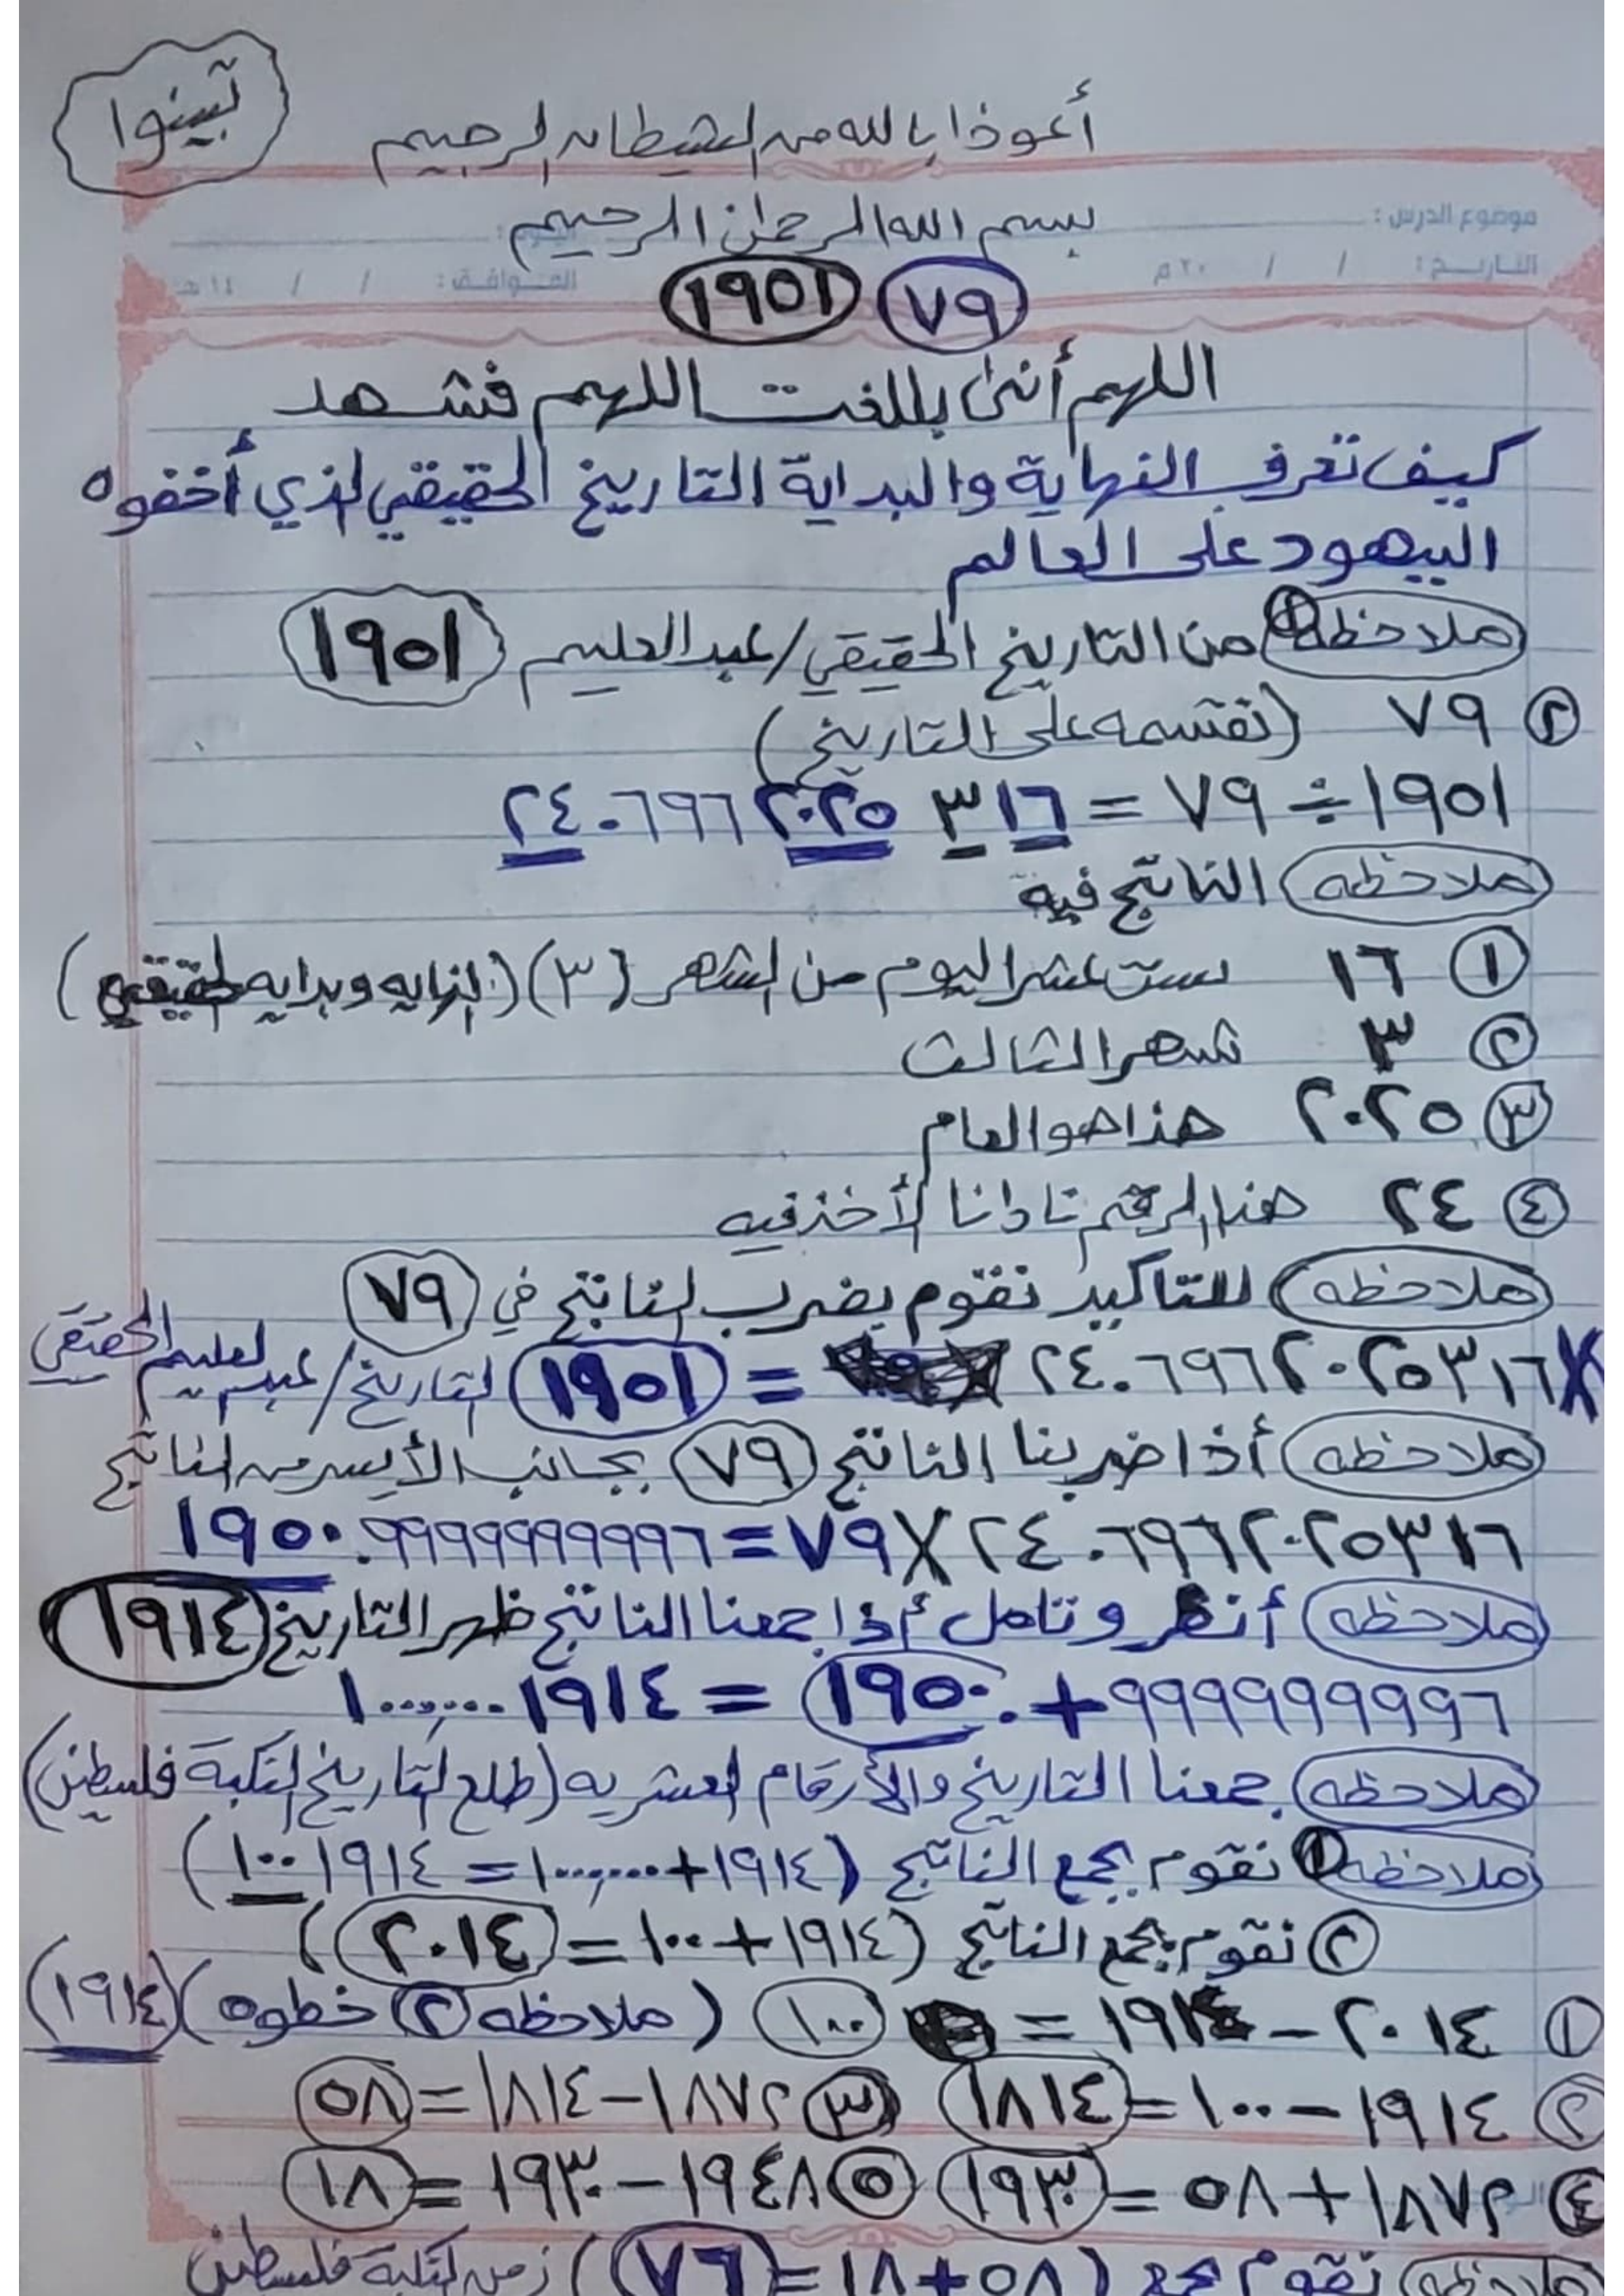 تبينوا
أعوذ بالله من الشيطان الرجيم
بسم الله الرحمن الرحيم
موضوع الدرس :
التاريخ : / / ٢٠ م الموافق : / / ١٤ هـ
٧٩ ١٩٥١
اللهم أنى بللغت اللهم فشهد
كيف تعرف النهاية والبداية التاريخ الحقيقي لذي أخفوه
اليهود على العالم
ملاحظه ١ من التاريخ الحقيقي / عبد العليم ١٩٥١
٢ ٧٩ (نقسمه على التاريخ)
١٩٥١ ÷ ٧٩ = ٢٤.٦٩٦٢٠٢٥٣١٦
ملاحظه الناتج فيه
١ ١٦ ست عشر اليوم من الشهر (٣) (النهايه وبدايه الحقيقي)
٢ ٣ شهر الثالث
٣ ٢٠٢٥ هذا هو العام
٤ ٢٤ هنا الرقم
ملاحظه للتاكيد نقوم بضرب لناتج في ٧٩
X ٢٤.٦٩٦٢٠٢٥٣١٦ = ١٩٥١ لتاريخ / عبد لعليم الحقيقي
ملاحظه أذا ضربنا الناتج ٧٩ بجانب الأيسر من لناتج
٢٤.٦٩٦٢٠٢٥٣١٦ X ٧٩ = ١٩٥٠.٩٩٩٩٩٩٩٩٩٦
ملاحظه أنظر وتامل أذا جمعنا الناتج ظهر التاريخ ١٩١٤
٩٩٩٩٩٩٩٩٩٦ + ١٩٥٠. = ١٠٠٠٠٠٠١٩١٤
ملاحظه جمعنا التاريخ والأرقام العشريه (طلع لتاريخ لنكبة فلسطين)
ملاحظه ١ نقوم بجمع الناتج (١٩١٤+١٠٠٠٠٠٠ = ١٠٠١٩١٤)
٢ نقوم بجمع الناتج (١٩١٤+١٠٠ = ٢٠١٤)
١ ٢٠١٤ – ١٩١٤ = ١٠٠ (ملاحظه ٢ خطوه) (١٩١٤)
٢ ١٩١٤ – ١٠٠ = ١٨١٤ ٣ ١٨٧٢ – ١٨١٤ = ٥٨
٤ ١٨٧٢ + ٥٨ = ١٩٣٠ ٥ ١٩٤٨ – ١٩٣٠ = ١٨
ملاحظه نقوم بجمع (٥٨+١٨ = ٧٦) زمن لنكبة فلسطين